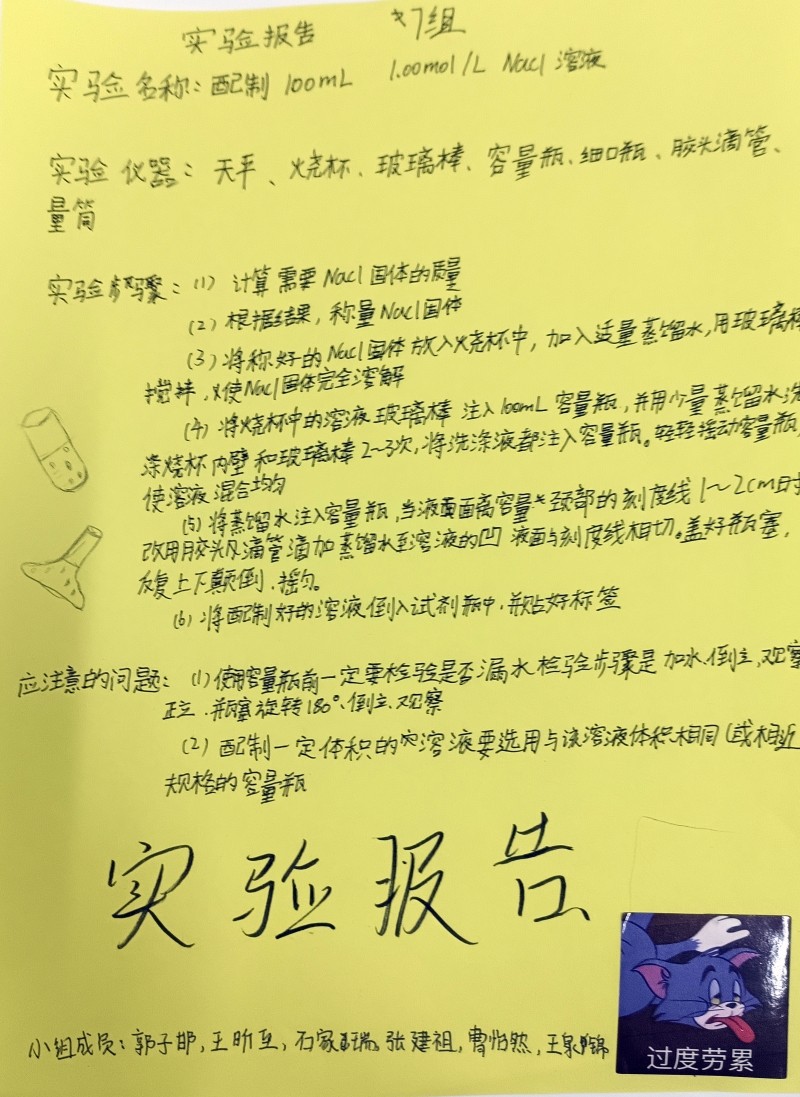 实验报告 7组
实验名称：配制 100mL 1.00mol/L Nacl 溶液
实验仪器：天平、烧杯、玻璃棒、容量瓶、细口瓶、胶头滴管、
量筒
实验步骤：(1) 计算需要 Nacl 固体的质量
(2) 根据结果，称量Nacl固体
(3) 将称好的Nacl固体放入烧杯中，加入适量蒸馏水，用玻璃棒
搅拌，使Nacl固体完全溶解
(4) 将烧杯中的溶液玻璃棒注入100mL容量瓶，并用少量蒸馏水洗
涤烧杯内壁和玻璃棒2～3次，将洗涤液都注入容量瓶。轻轻摇动容量瓶，
使溶液混合均匀
(5) 将蒸馏水注入容量瓶，当液面面离容量颈部的刻度线1～2cm时
改用胶头滴管滴加蒸馏水至溶液的凹液面与刻度线相切。盖好瓶塞，
反复上下颠倒、摇匀。
(6) 将配制好的溶液倒入试剂瓶中，并贴好标签
应注意的问题：(1) 使用容量瓶前一定要检验是否漏水 检验步骤是 加水、倒立、观察
正立、瓶塞旋转180°、倒立、观察
(2) 配制一定体积的溶液要选用与该溶液体积相同(或相近
规格的容量瓶
实验报告
小组成员：郭子邯，王昕，石家瑞，张建祖，曹怡然，王泉锦
过度劳累